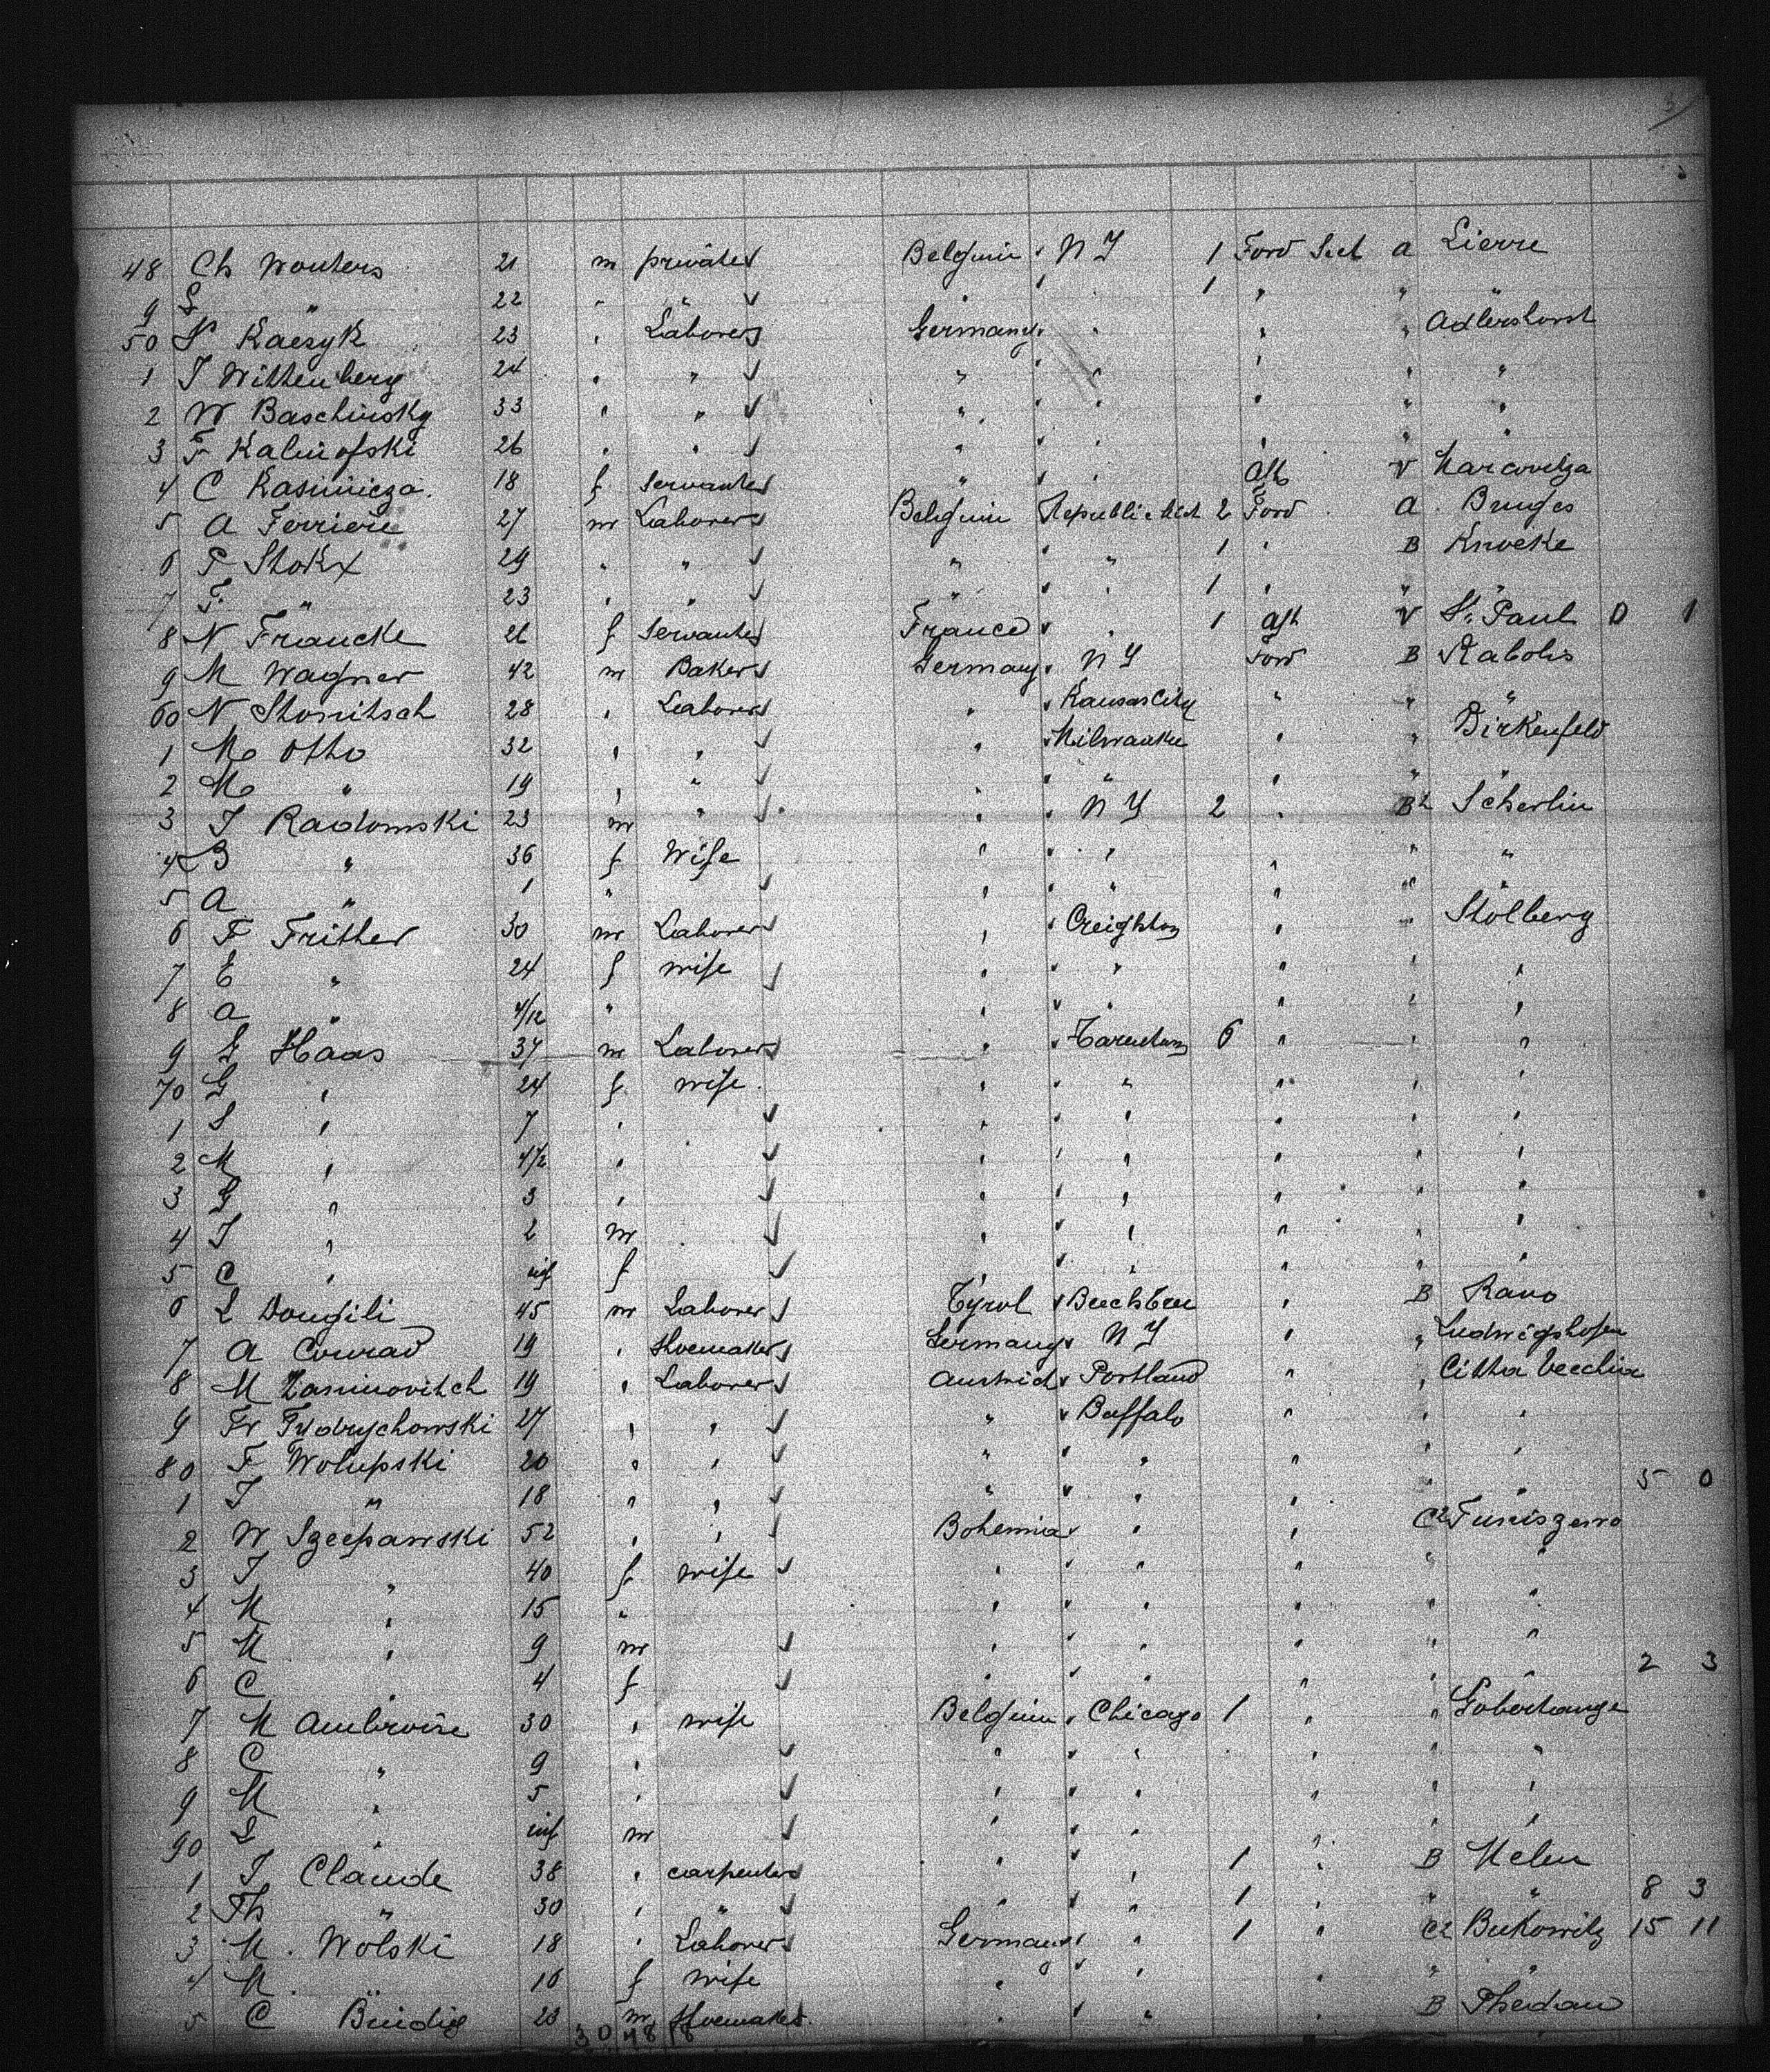 48 Ch Wouters 21 m private Belgium N Y 1 Forw Sect a Lierre
9 L " 22 " " " " 1 " " "
50 P Kaczyk 23 " Laborer Germany " " " Adlershorst
1 J Wittenberg 24 " " " " " " "
2 W Baschinsky 33 " " " " " " "
3 F Kalinofski 26 " " " " " " "
4 C Kasimicza 18 f Servante " " Aft V
5 A Ferriere 27 m Laborer Belgium Republic Mich 2 Forw A Bruges
6 P Stokx 29 " " " " 1 " B Knocke
7 F. " 23 " " " " 1 " " "
8 N Francke 26 f Servante France " 1 aft V St. Paul 0 1
9 M Wagner 42 m Baker Germany N Y Forw B Rabolis
60 N Stonitsch 28 " Laborer " Kansas City " " "
1 M Otto 32 " " " Milwaukee " " Birkenfeld
2 M " 19 " " " " " " "
3 J Radomski 23 m " " N Y 2 " B2 Scherlin
4 B " 36 f Wife " " " " "
5 A " 1 " " " " " "
6 F Frither 30 m Laborer " Creighton " " Stolberg
7 E " 24 f wife " " " " "
8 a " 4/12 " " " " " "
9 L Haas 37 m Laborer " Tarentum 6 " " "
70 G " 24 f wife " " " " "
1 S " 7 " " " " " "
2 M " 4 1/2 " " " " " "
3 G " 3 " " " " " "
4 J " 2 m " " " " "
5 C " inf f " " " " "
6 L Dougili 45 m Laborer Tyrol Beechtree " B Ravo
7 A Conrad 19 " Shoemaker Germany N Y " " Ludwigshofen
8 M Zaninovitch 19 " Laborer Austrich Portland " " Citta Vecchia
9 Fr Frydrychowski 27 " " " Buffalo " " "
80 F Wolupski 20 " " " " " " "
1 J " 18 " " " " " " " 5 0
2 W Szcepanski 52 " " Bohemia " " C2
3 J " 40 f wife " " " " "
4 M " 15 " " " " " "
5 M " 9 m " " " " "
6 C " 4 f " " " " " 2 3
7 M Ambroise 30 " wife Belgium Chicago 1 " " Gobertange
8 C " 9 " " " " " "
9 M " 5 " " " " " "
90 L " inf m " " " " "
1 J Claude 38 " carpenter " " 1 " B Melen
2 Th " 30 " " " " 1 " " " 8 3
3 M. Wolski 18 " Laborer Germany " 1 " C2 Bukowitz 15 11
4 M. " 16 f wife " " " " "
5 C Bindig 23 m Shoemaker " " " B
30 48 18